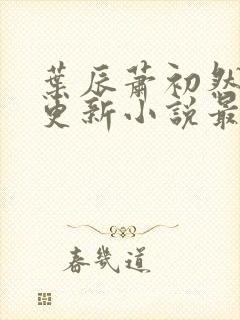 葉辰蕭初然
更新小說最
春幾道